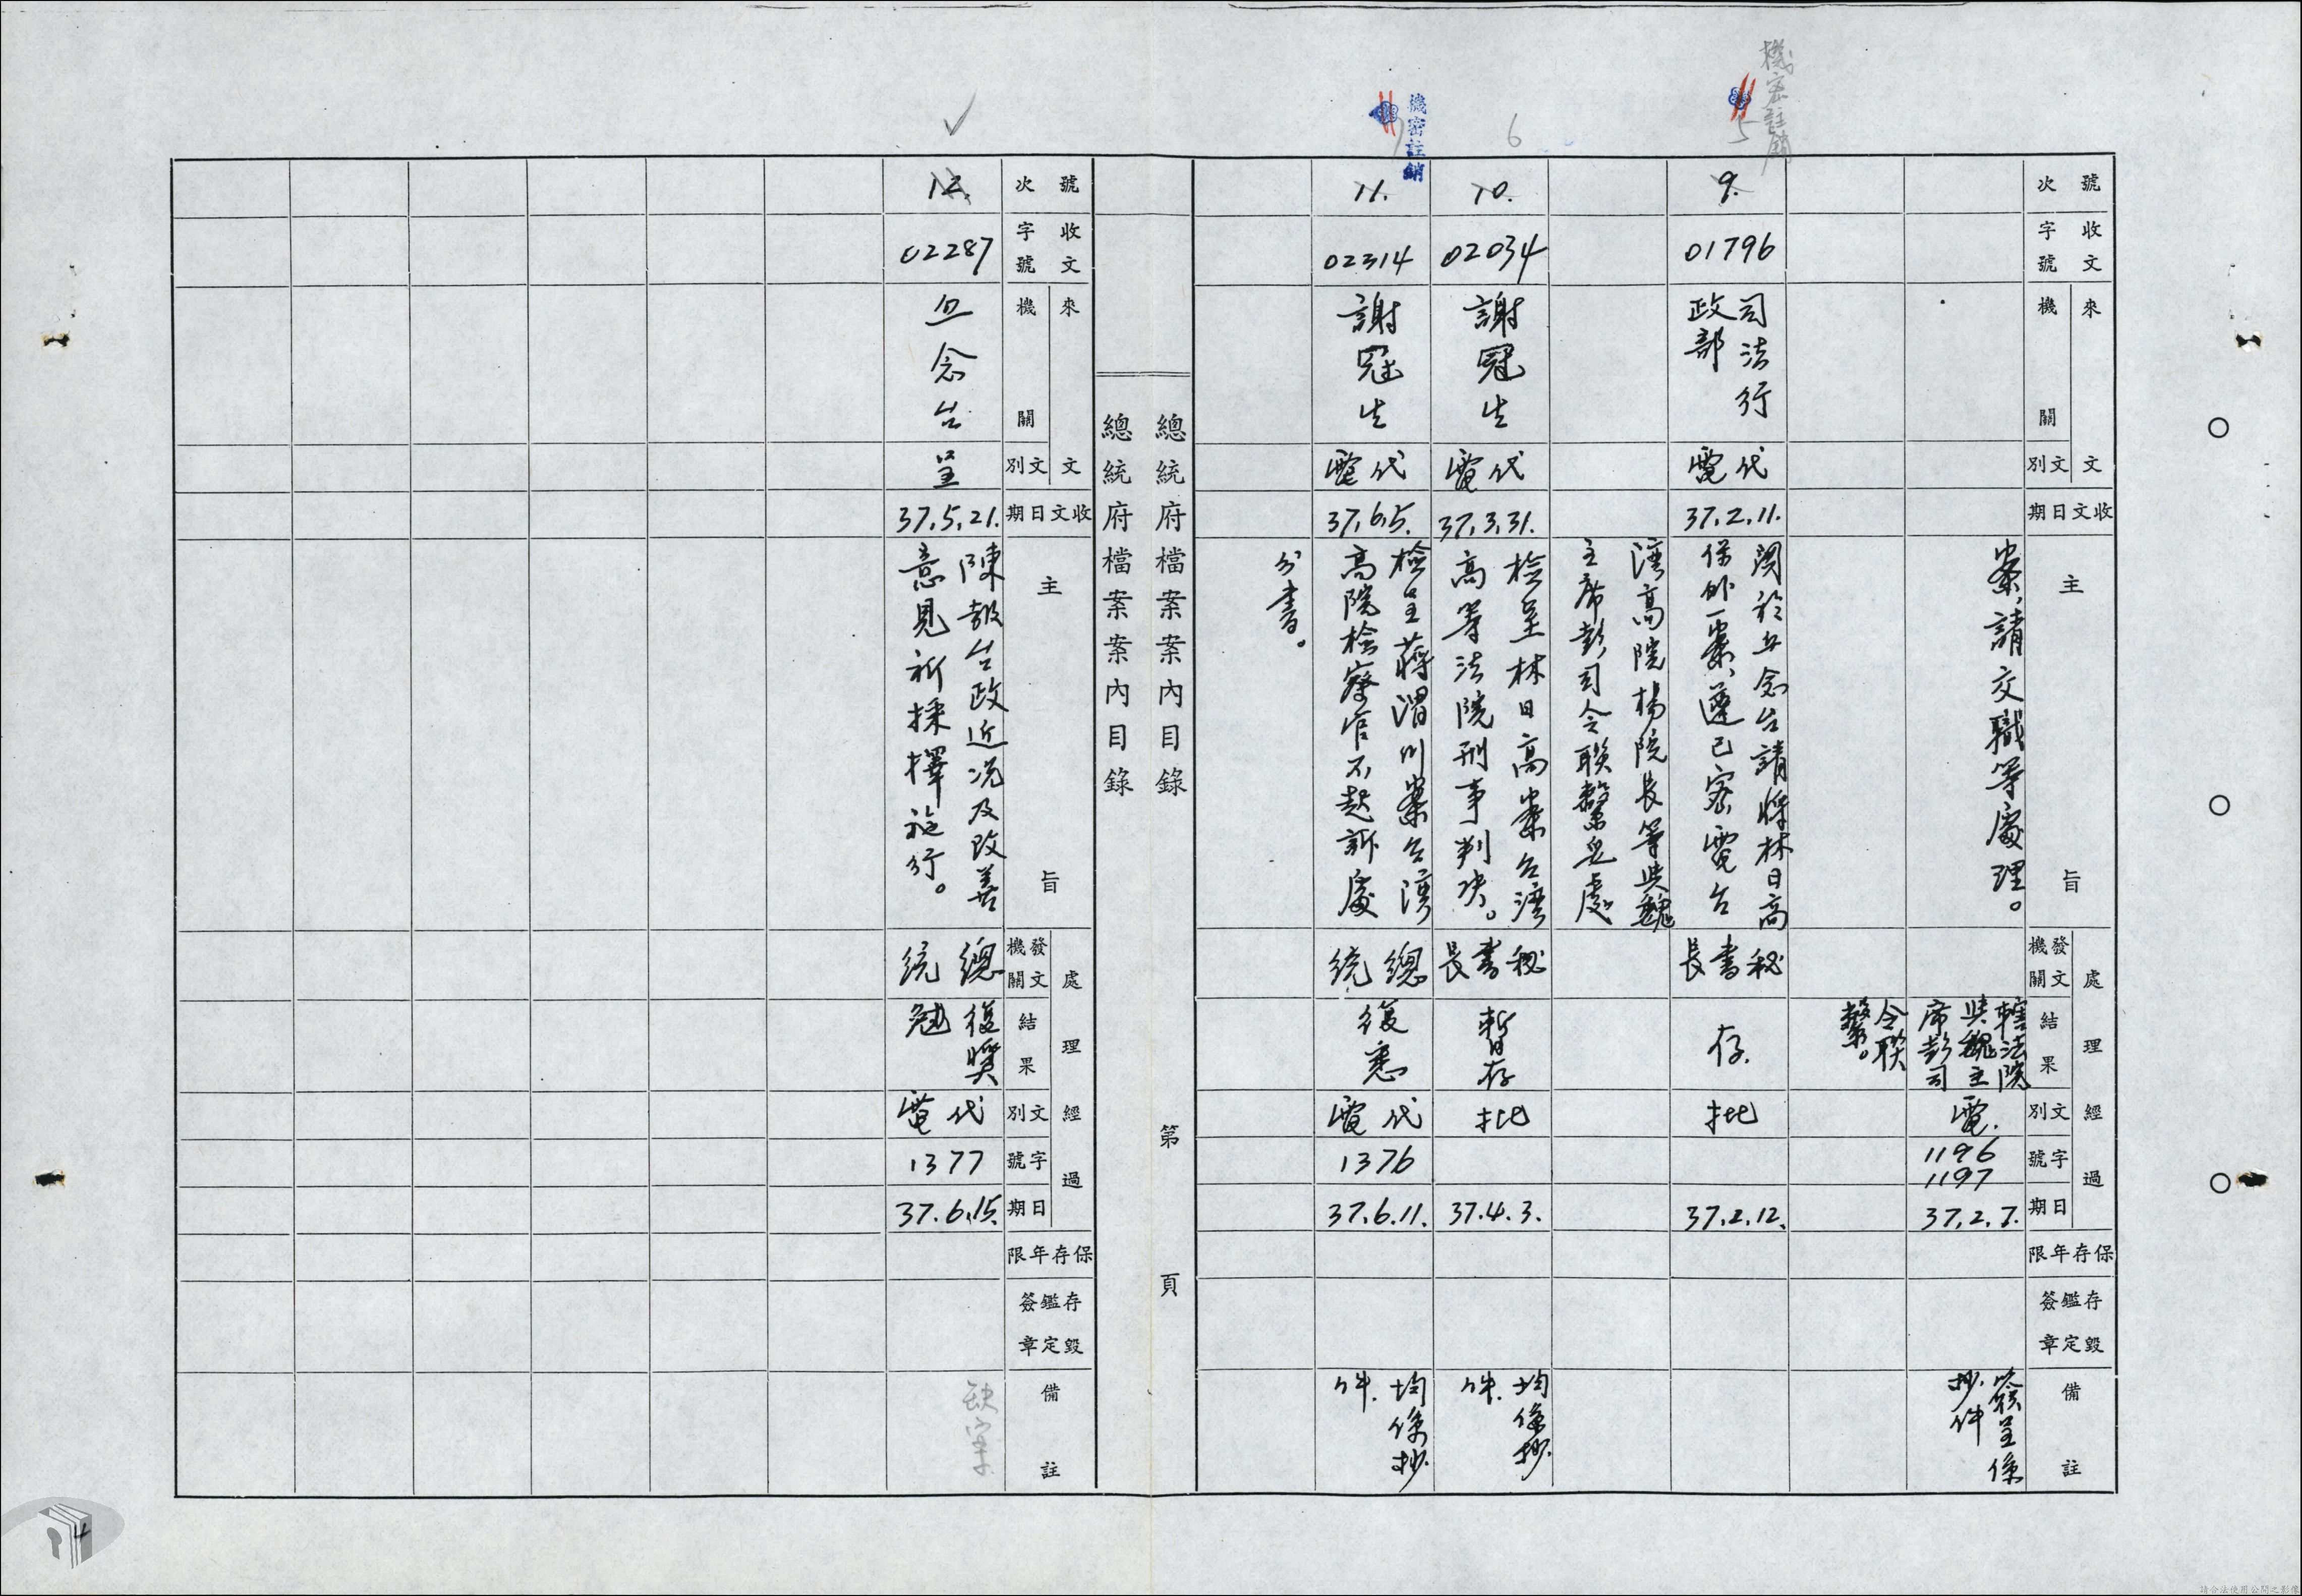 機密註銷
5
6
機密註銷
7
號次
收文字號
來文機關
文別
收文日期
主旨
處理經過
發文機關
結果
文別
字號
日期
保存年限
存毀鑑定簽章
備註
案，請交職等處理。
轄法院
與魏主
席彭司
令聯
繫。
電.
1196
1197
37.2.7.
簽呈係
抄件
9.
01796
司法行
政部
代電
37.2.11.
關於丘念台請將林日高
保外一案，遵已密電台
灣高院楊院長等與魏
主席彭司令聯繫妥處
秘書長
存.
批
37.2.12.
10.
02034
謝冠生
代電
37.3.31.
檢呈林日高案台灣
高等法院刑事判決。
秘書長
暫存
批
37.4.3.
均係抄
件.
11.
02314
謝冠生
代電
37.6.5.
檢呈蔣渭川案台灣
高院檢察官不起訴處
分書。
總統
復悉
代電
1376
37.6.11.
均係抄
件.
總統府檔案案內目錄
第 頁
總統府檔案案內目錄
號次
收文字號
來文機關
文別
收文日期
主旨
處理經過
發文機關
結果
文別
字號
日期
保存年限
存毀鑑定簽章
備註
12.
02287
丘念台
呈
37.5.21.
陳報台政近況及改善
意見祈採擇施行。
總統
復獎
勉
代電
1377
37.6.15.
4
請合法使用公開之影像